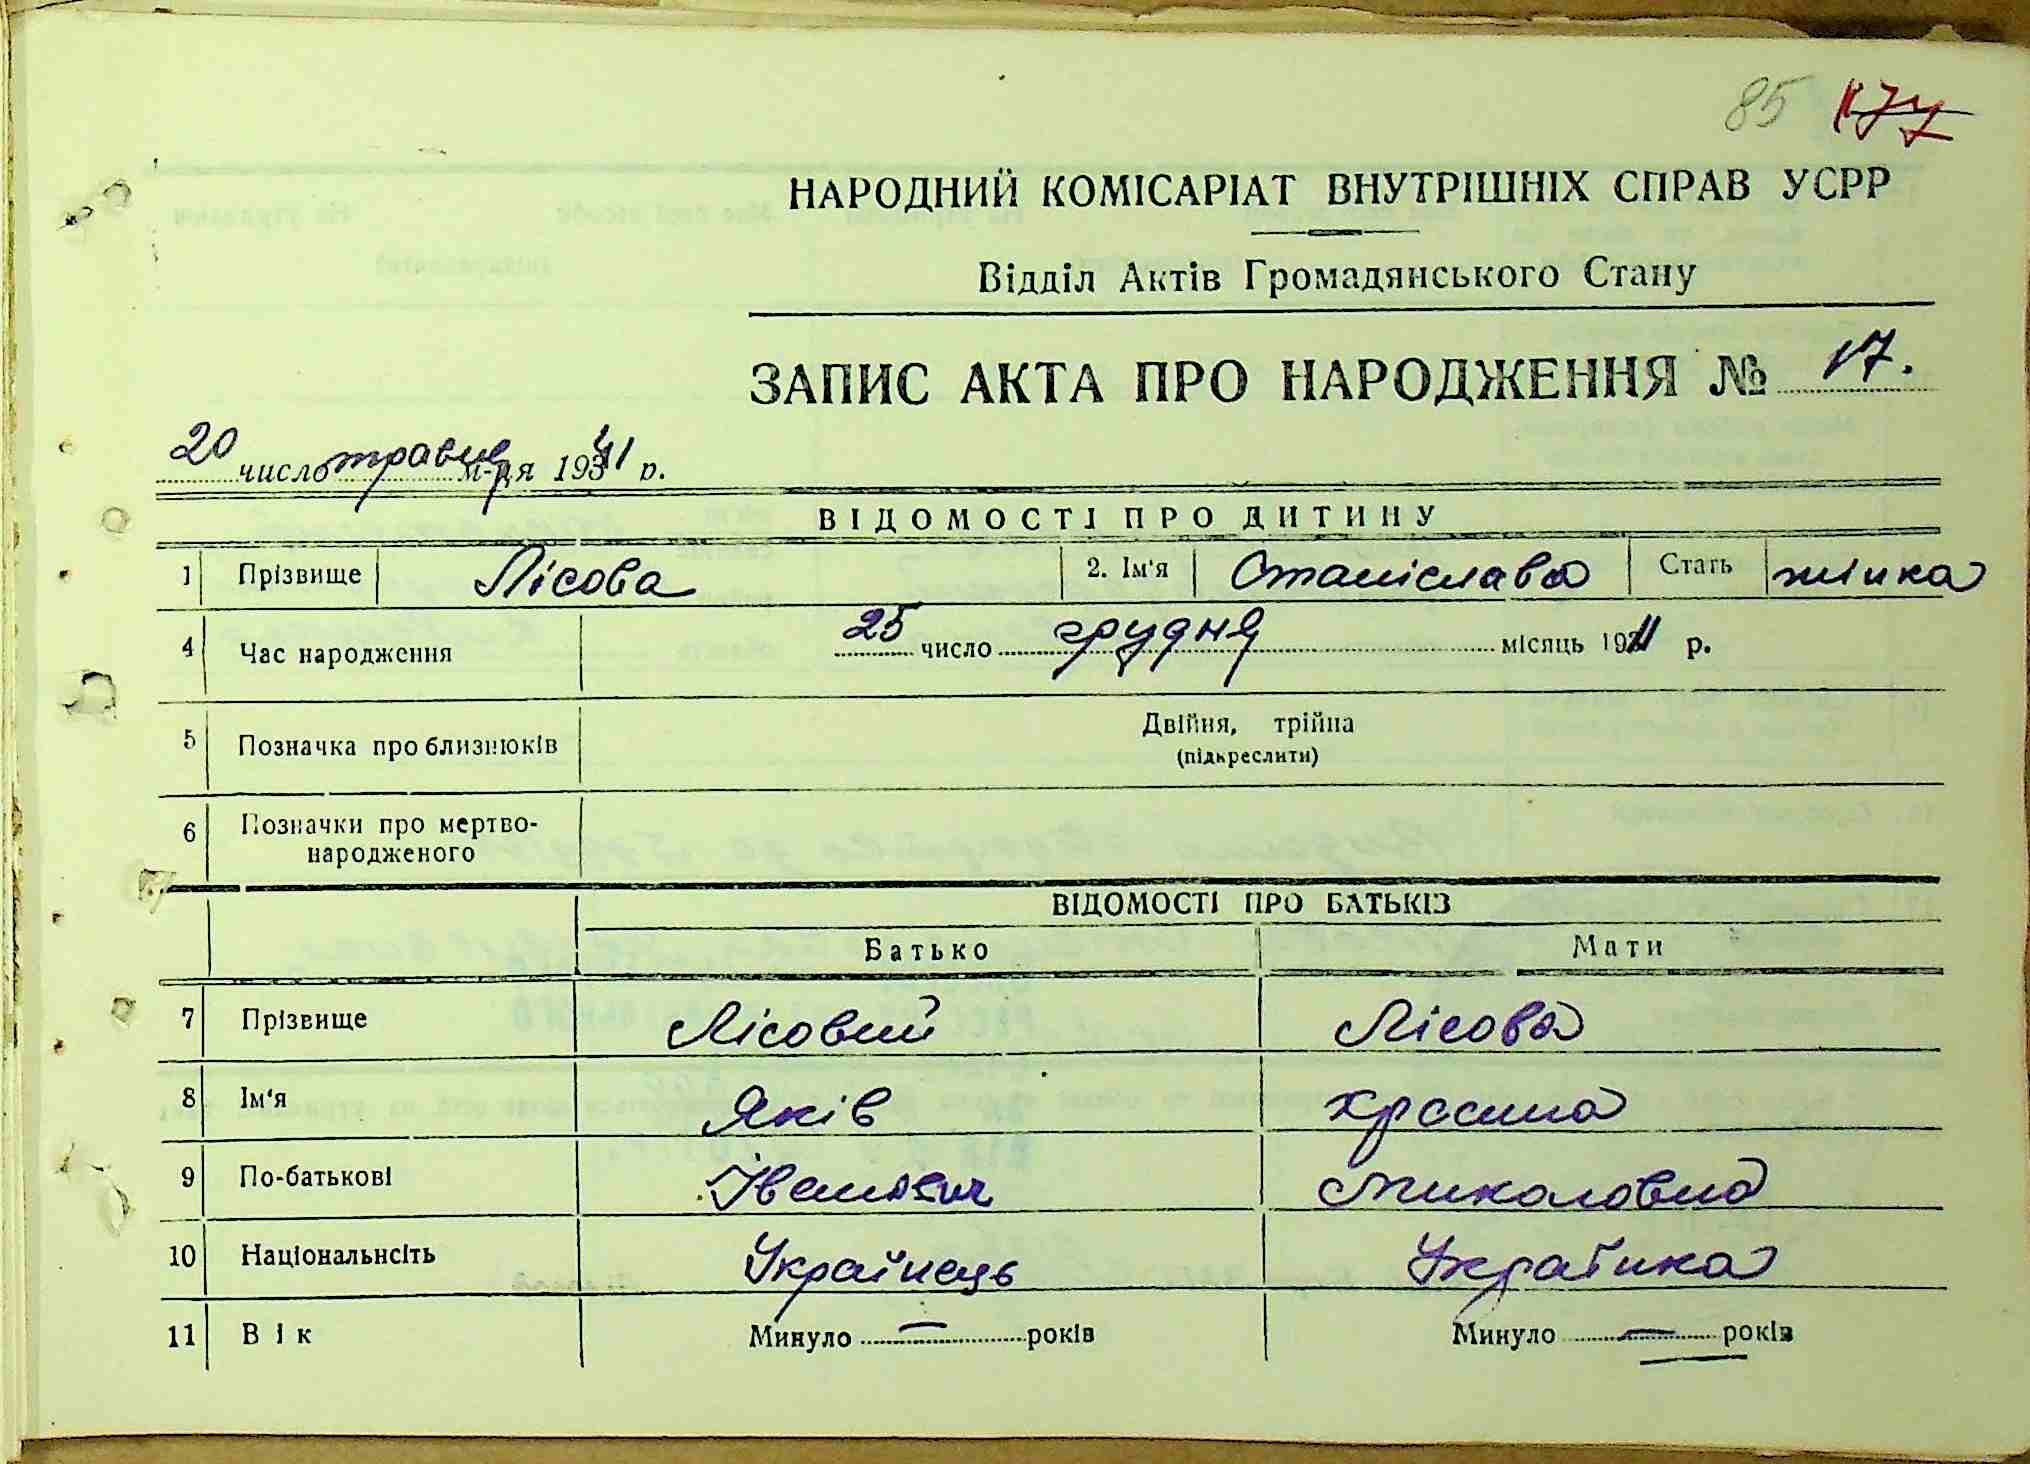 85 177
НАРОДНИЙ КОМІСАРІАТ ВНУТРІШНІХ СПРАВ УСРР
Відділ Актів Громадянського Стану
ЗАПИС АКТА ПРО НАРОДЖЕННЯ № 17.
20 число травня м-ця 1941 р.
ВІДОМОСТІ ПРО ДИТИНУ
1 Прізвище Лісова 2. Ім'я Станіслава Стать жінка
4 Час народження 25 число грудня місяць 1911 р.
5 Позначка про близнюків Двійня, трійна
(підкреслити)
6 Позначки про мертво-
народженого
ВІДОМОСТІ ПРО БАТЬКІВ
Батько Мати
7 Прізвище Лісовий Лісова
8 Ім'я Яків
9 По-батькові Іванович Миколовна
10 Національнсіть Українець Українка
11 Вік Минуло — років Минуло — років